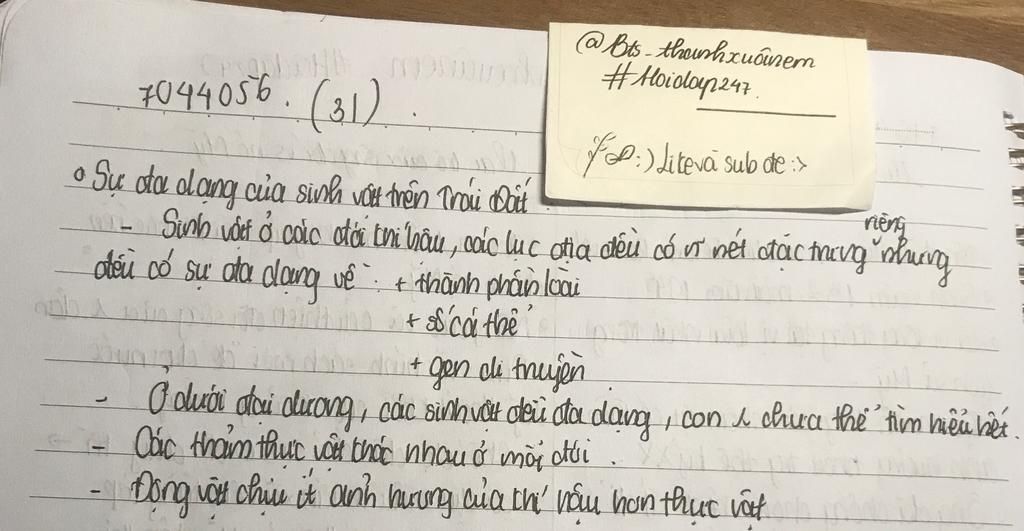 @Bts_thanhxuânem
#Hoidap247.
:) Like và sub de :>
7044056. (31).
Sự đa dạng của sinh vật trên Trái Đất
- Sinh vật ở các đới khí hậu, các lục địa đều có n~ nét đặc trưng riêng nhưng
đều có sự đa dạng về: + thành phần loài
+ số cá thể
+ gen di truyền
- Ở dưới đại dương, các sinh vật đều đa dạng, con λ chưa thể tìm hiểu hết.
- Các thảm thực vật khác nhau ở mỗi đới.
- Động vật chịu ít ảnh hưởng của khí hậu hơn thực vật